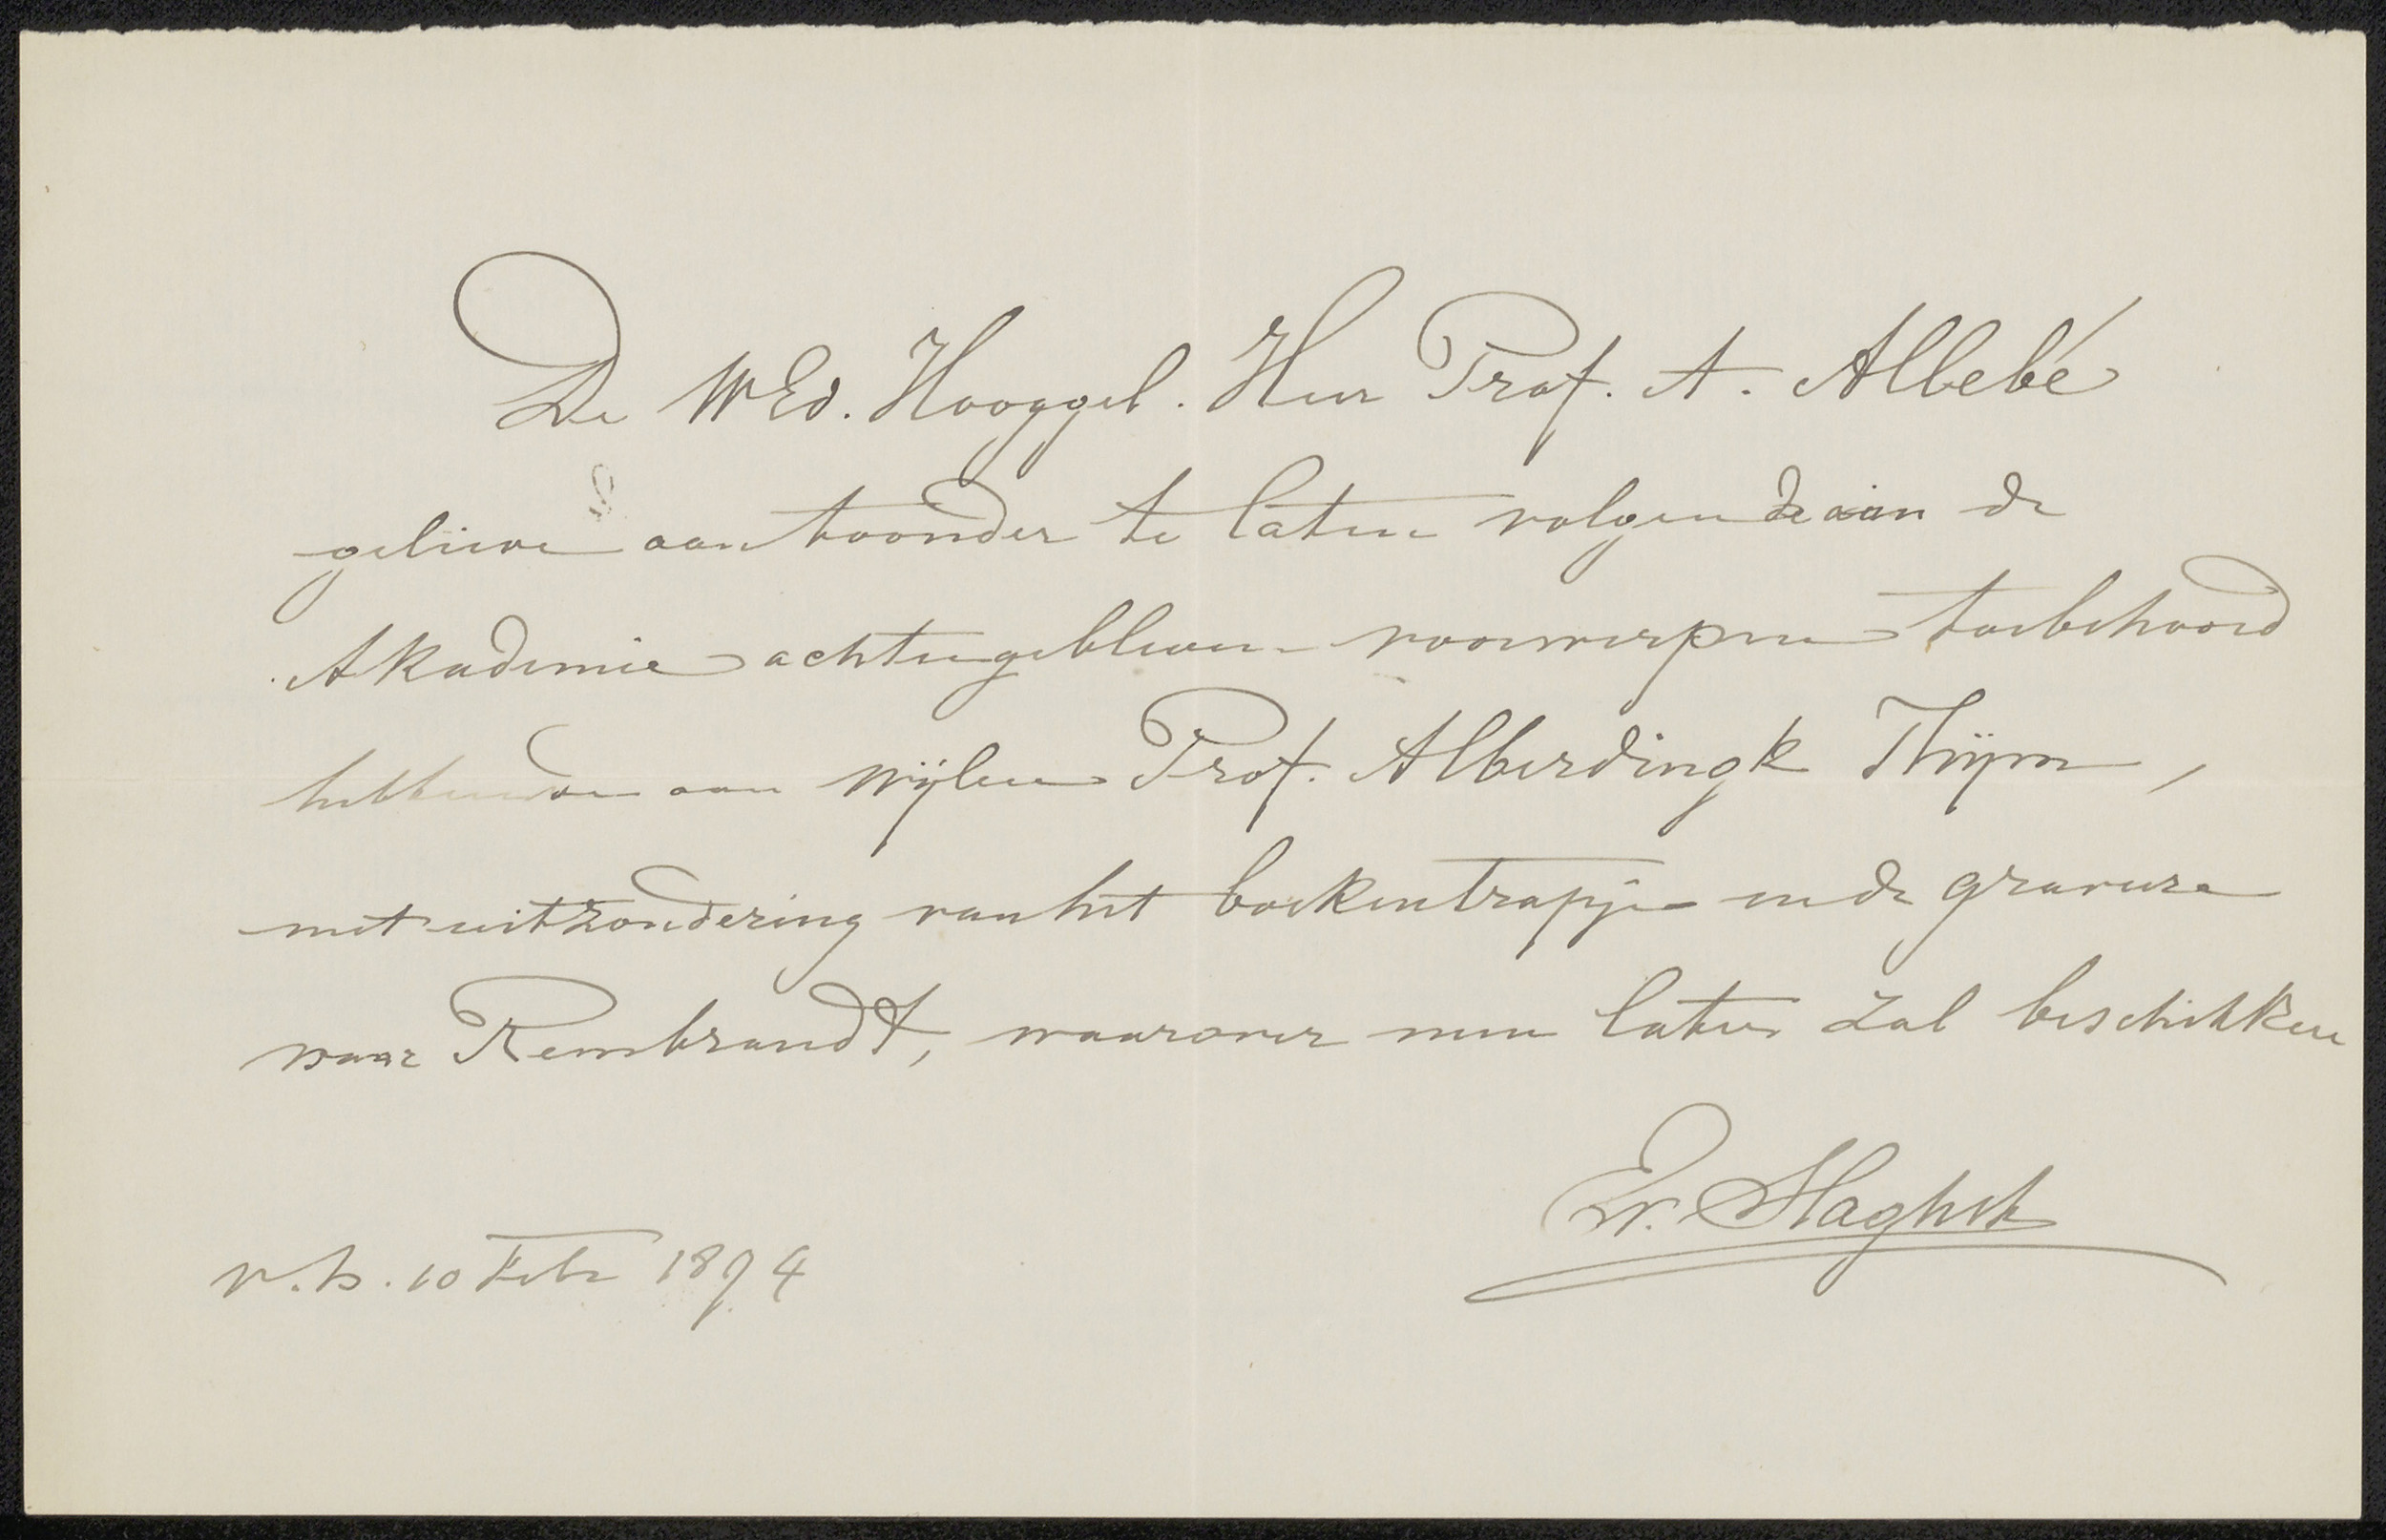 De WEd. Hooggel. Heer Prof. A. Allebé
gelieve aan toonder te laten volgen de aan de
Akademie achtergebleven voorwerpen toebehoord
hebbende aan wijlen Prof. Alberdingk Thijm,
met uitzondering van het boekentrapje en de gravure
naar Rembrandt, waarover men later zal beschikken
v. h. 10 Febr 1894